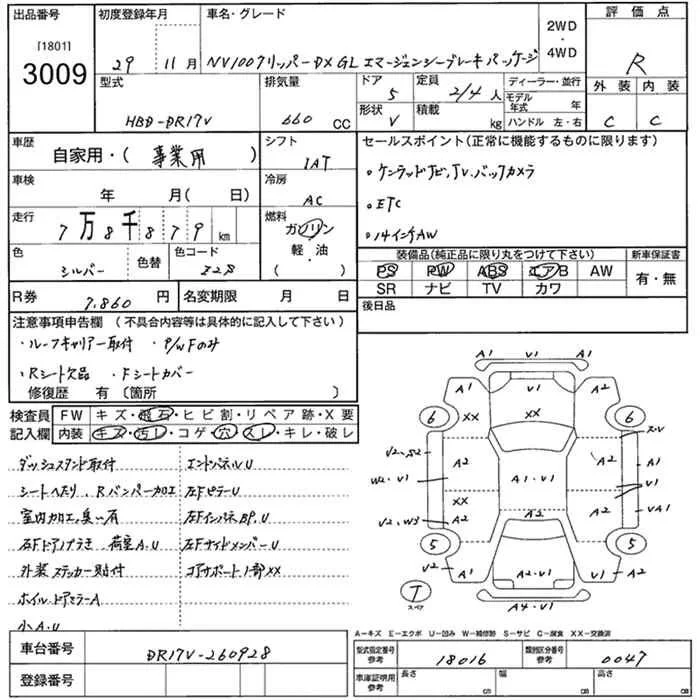 出品番号 初度登録年月 車名・グレード 2WD・4WD 評価点
[1801]
3009 29 11月 NV100クリッパーDX GL エマージェンシーブレーキ パッケージ R
型式 排気量 ドア 5 定員 2/4人 ディーラー・並行 外装 内装
HBD-DR17V 660 CC 形状 V 積載 kg モデル年式 年 ハンドル 左・右 C C
車歴 自家用・( 事業用 ) シフト 1AT セールスポイント(正常に機能するものに限ります)
車検 年 月( 日) 冷房 AC ・ケンウッドナビ,TV.バックカメラ
・ETC
走行 7万8千879km 燃料 ガソリン 軽・油 ( ) ・14インチAW
色 シルバー 色替 色コード Z28 装備品(純正品に限り丸をつけて下さい) 新車保証書
PS PW ABS エアB AW 有・無
SR ナビ TV カワ
R券 7,860円 名変期限 月 日 後日品
注意事項申告欄 (不具合内容等は具体的に記入して下さい)
・ルーフキャリアー取付 ・P/WFのみ
・Rシート欠品 ・Fシートカバー
修復歴 有〔箇所 〕
検査員記入欄 FW キズ・飛石・ヒビ割・リペア跡・X要
内装 キズ・汚レ・コゲ・穴・スレ・キレ・破レ
ダッシュスタンド取付 エンドパネルU
シートへたり、Rバンパー加工 左FピラーU
室内加工,臭い有 左FインパネBP.U
右Fドア1ブラキ、荷室A.U 左FサイドメンバーU
外装ステッカー貼付 コアサポート1部XX
ホイルドアミラーA
小A.U
A1 V1 A1
A1 XX XX A2
6 6
V2・S2 A2 A2 スレ
W2・V1 A1・V1 V1
XX
V2、W3 A2 A2 A2 VA1
5 5
V2 A1 A2・V1 V1 A2
T スペア A4・V1
A−キズ E−エクボ U−凹み W−補修跡 S−サビ C−腐食 XX−交換済
車台番号 DR17V-260928 型式指定番号 参考 18016 類別区分番号 参考 0047
登録番号 車庫証明用 参考 長さ cm 幅 cm 高さ cm